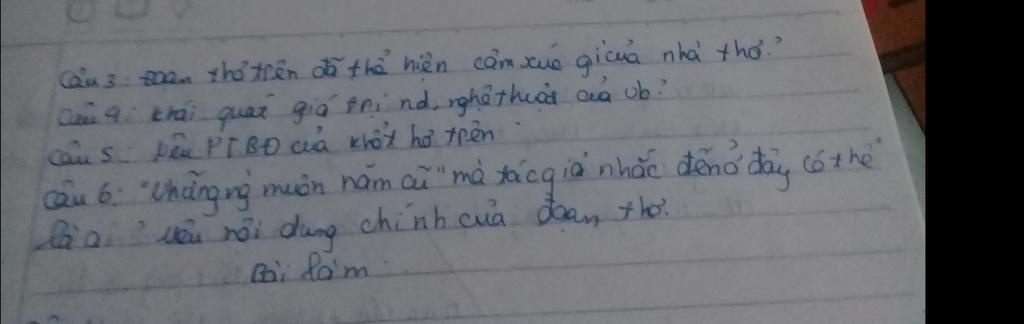 Câu 3: đoạn thơ trên đã thể hiện cảm xúc gì của nhà thơ?
Câu 4: khái quát giá trị nd, nghệ thuật của vb?
Câu 5: Nêu PTBĐ của khổ thơ trên
Câu 6: "những ng muôn năm cũ" mà tác giả nhắc đến ở đây có thể
là ai? nêu nội dung chính của đoạn thơ.
Bài làm